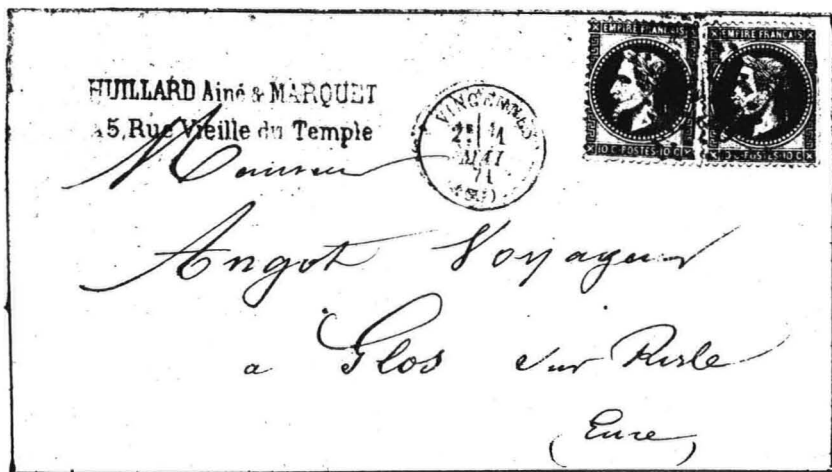 HUILLARD Ainé & MARQUET
45, Rue Vieille du Temple
VINCENNES
2E
MAI
71
EMPIRE FRANÇAIS
10 C·POSTES·10 C
EMPIRE FRANÇAIS
10 C·POSTES·10 C
Monsieur
Angot Voyageur
a Glos sur Risle
(Eure)